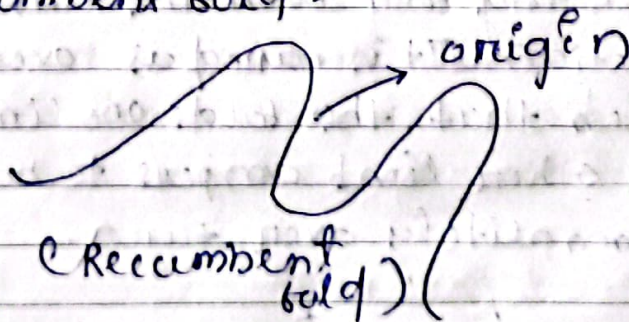 origin
(Recumbent
fold)